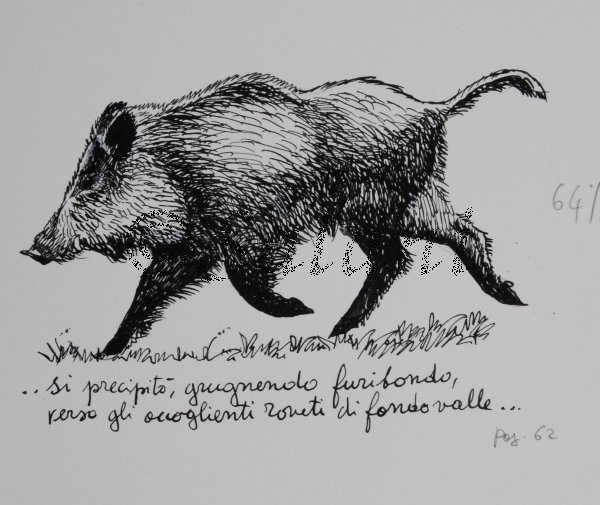 .. si precipitò, grugnendo furibondo,
verso gli accoglienti roveti di fondovalle...
pag. 62